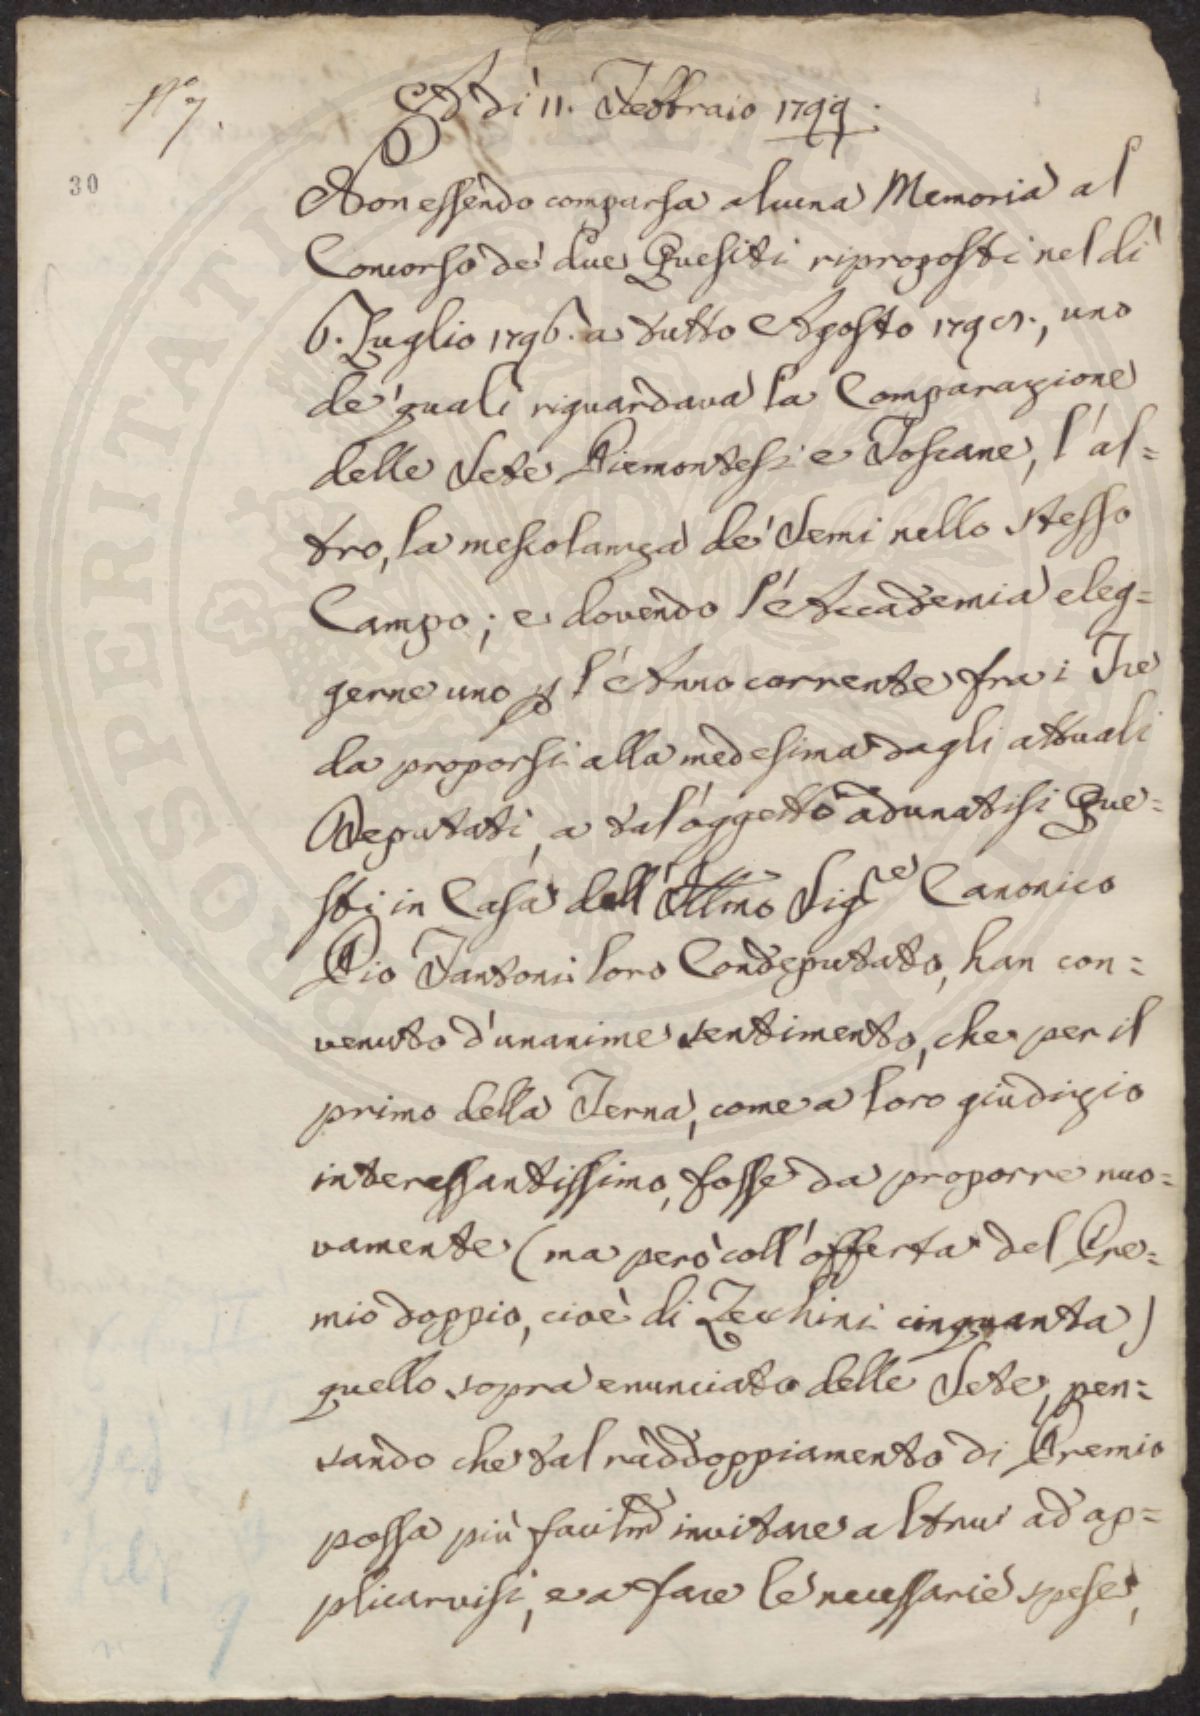 N.° 7.
Ad dì 11. Febbraio 1799.
30
Non essendo comparsa alcuna Memoria al
Concorso de' due Quesiti riproposti nel dì
6. Luglio 1796. a tutto Agosto 1797., uno
de' quali riguardava la Comparazione
delle Sete Piemontesi e Toscane, l'al=
tro, la mescolanza de' Semi nello stesso
Campo; e dovendo l'Accademia eleg=
gerne uno p l'Anno corrente fra i Tre
da proporsi alla medesima dagli attuali
Deputati, a tal'oggetto adunatisi Que=
sti in Casa dell'Illmo Sigre Canonico
Pio Fantoni loro Condeputato, han con=
venuto d'unanime sentimento, che per il
primo della Terna, come a loro giudizio
interessantissimo, fosse da proporre nuo=
vamente (ma però coll'offerta del Pre=
mio doppio, cioè di Zecchini cinquanta)
quello sopra enunciato delle Sete, pen=
sando che tal raddoppiamento di Premio
possa più facilmē invitare altrui ad ap=
plicarvisi, e a fare le necessarie spese,
PROSPERITATI